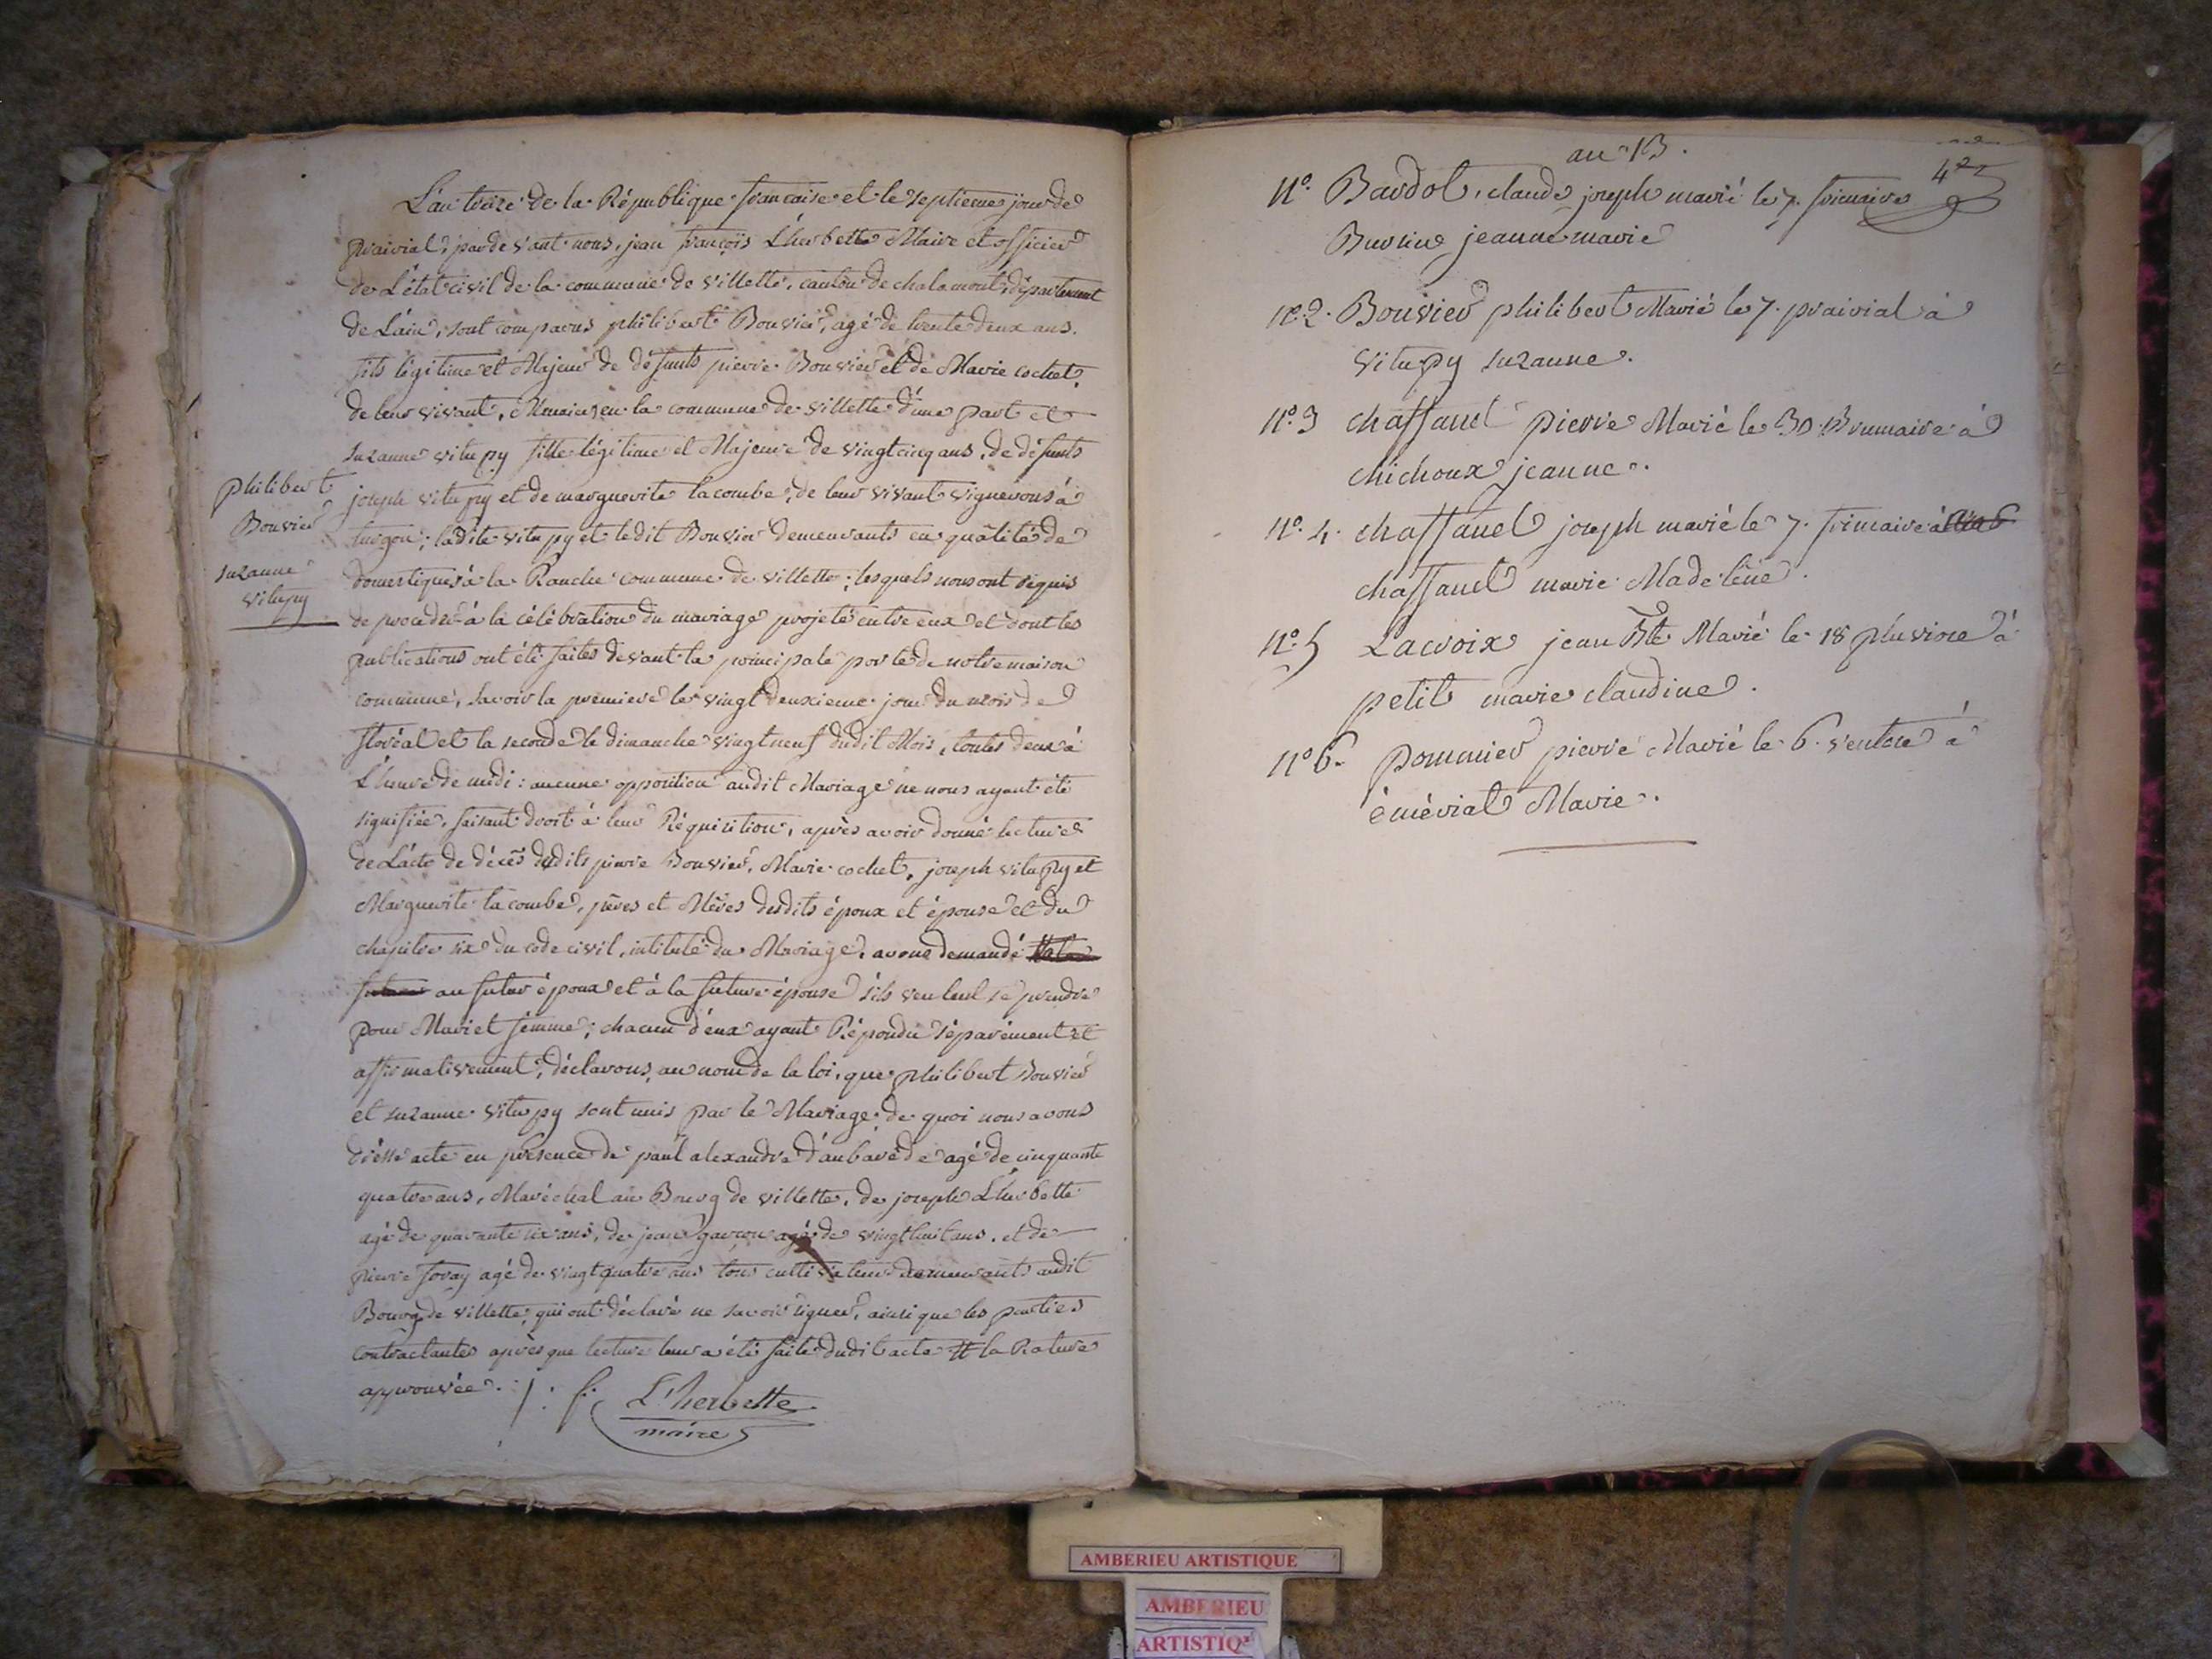 L'an treize de la République francaise et le septieme jour de
prairial, pardevant nous, jean françois L'herbette Maire et officier
de L'état civil de la commune de villette, canton de chalamont, département
de L'ain, sont comparus philibert Bouvier, agé de trente deux ans.
fils légitime et Majeur de défunts pierre Bouvier et de Marie cochet,
de leur vivant, en la commune de villette d'une part et
suzanne vitupy fille légitime et Majeure de vingt cinq ans, de défunts
joseph vitupy et de marguerite lacombe, de leur vivant vignerons à
; ladite vitupy et ledit Bouvier demeurants en qualité de
domestiques à la Ranche commune de villette; lesquels nous ont requis
de procéder à la célébration du mariage projeté entre eux et dont les
publications ont été faites devant la principale porte de notre maison
commune, savoir la premiere le vingt deuxieme jour du mois de
floréal et la seconde le dimanche vingt neuf dudit Mois, toutes deux à
L'heure de midi: aucune opposition audit Mariage ne nous ayant été
signifiée, faisant droit à leur Réquisition, après avoir donné lecture
de L'acte de décès dedits pierre Bouvier, Marie cochet, joseph vitupy et
Marguerite lacombe, pères et Mères desdits époux et épouse et du
chapitre six du code civil, intitulé du Mariage, avons demandé
au futur époux et à la future épouse s'ils veulent se prendre
pour Mari et femme; chacun d'eux ayant Répondu séparément et
affirmativement; déclarons, au nom de la loi, que philibert Bouvier
et suzanne vitupy sont unis par le Mariage; de quoi nous avons
dressé acte en présence de paul alexandre d'aubarède agé de cinquante
quatre ans, Maréchal au Bourg de villette, de joseph L'herbette
agé de quarante six ans, de jean garçon agé de vingt huit ans, et de
pierre foray agé de vingt quatre ans tous cultivateurs demeurants audit
Bourg de villette; qui ont déclaré ne savoir signer, ainsi que les parties
contractantes après que lecture leur a été faite dudit acte la Rature
approuvée. j: f: L'herbette
maire
philibert
Bouvier
suzanne
vitupy
an 13.
42
n°. Bardot, claude joseph marié le 7. frimaire
jeanne marie
n°. 2. Bouvier philibert Marié le 7. prairial à
vitupy suzanne.
n°. 3 chassanel pierre Marié le 30 Brumaire à
chichoux jeanne.
n°. 4. chassanel joseph marié le 7. frimaire à
chassanel marie Madeleine.
n°. 5 Lacroix jean Bte Marié le 18 pluviose à
petit marie claudine.
n° 6. pommier pierre Marié le 6. ventose à
émérial Marie.
AMBERIEU ARTISTIQUE
AMBERIEU
ARTISTIQ